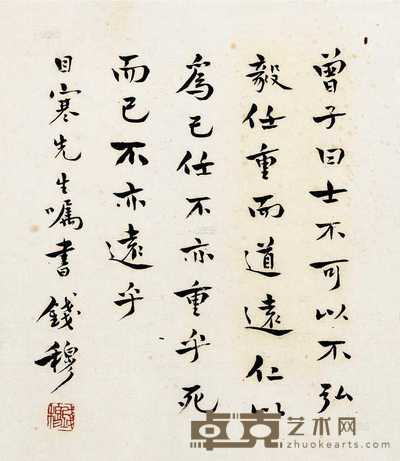 曾子曰士不可以不弘
毅任重而道遠仁以
爲己任不亦重乎死
而已不亦遠乎
目寒先生囑書 錢穆
卓克艺术网
zhuokearts.com